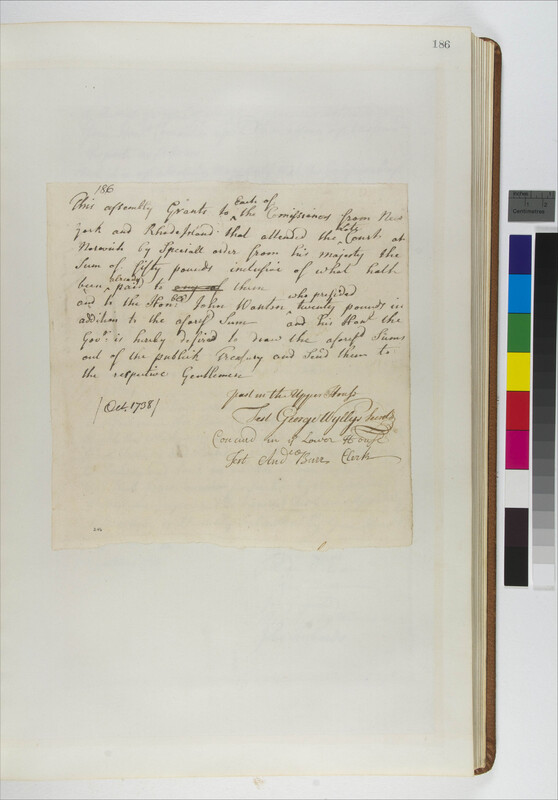 186
186
This assembly Grants to ^ Each of the Comissioners from New
York and Rhode Island that attended the ^ late Court at
Norwich by Speciall order from his majesty the
Sum of fifty pounds inclusive of what hath
been ^ already paid to any of them
and to the Honble John Wanton who presided twenty pounds in
addition to the aforesd Sum and his Honr the
Govr is hereby desired to draw the aforesd Sums
out of the publick Treasury and Send them to
the respective Gentlemen
[Oct. 1738]
past in the Upper House
Test George Wyllys Secretry
Concurd in ye Lower House
Test Andrew Burr Clerk